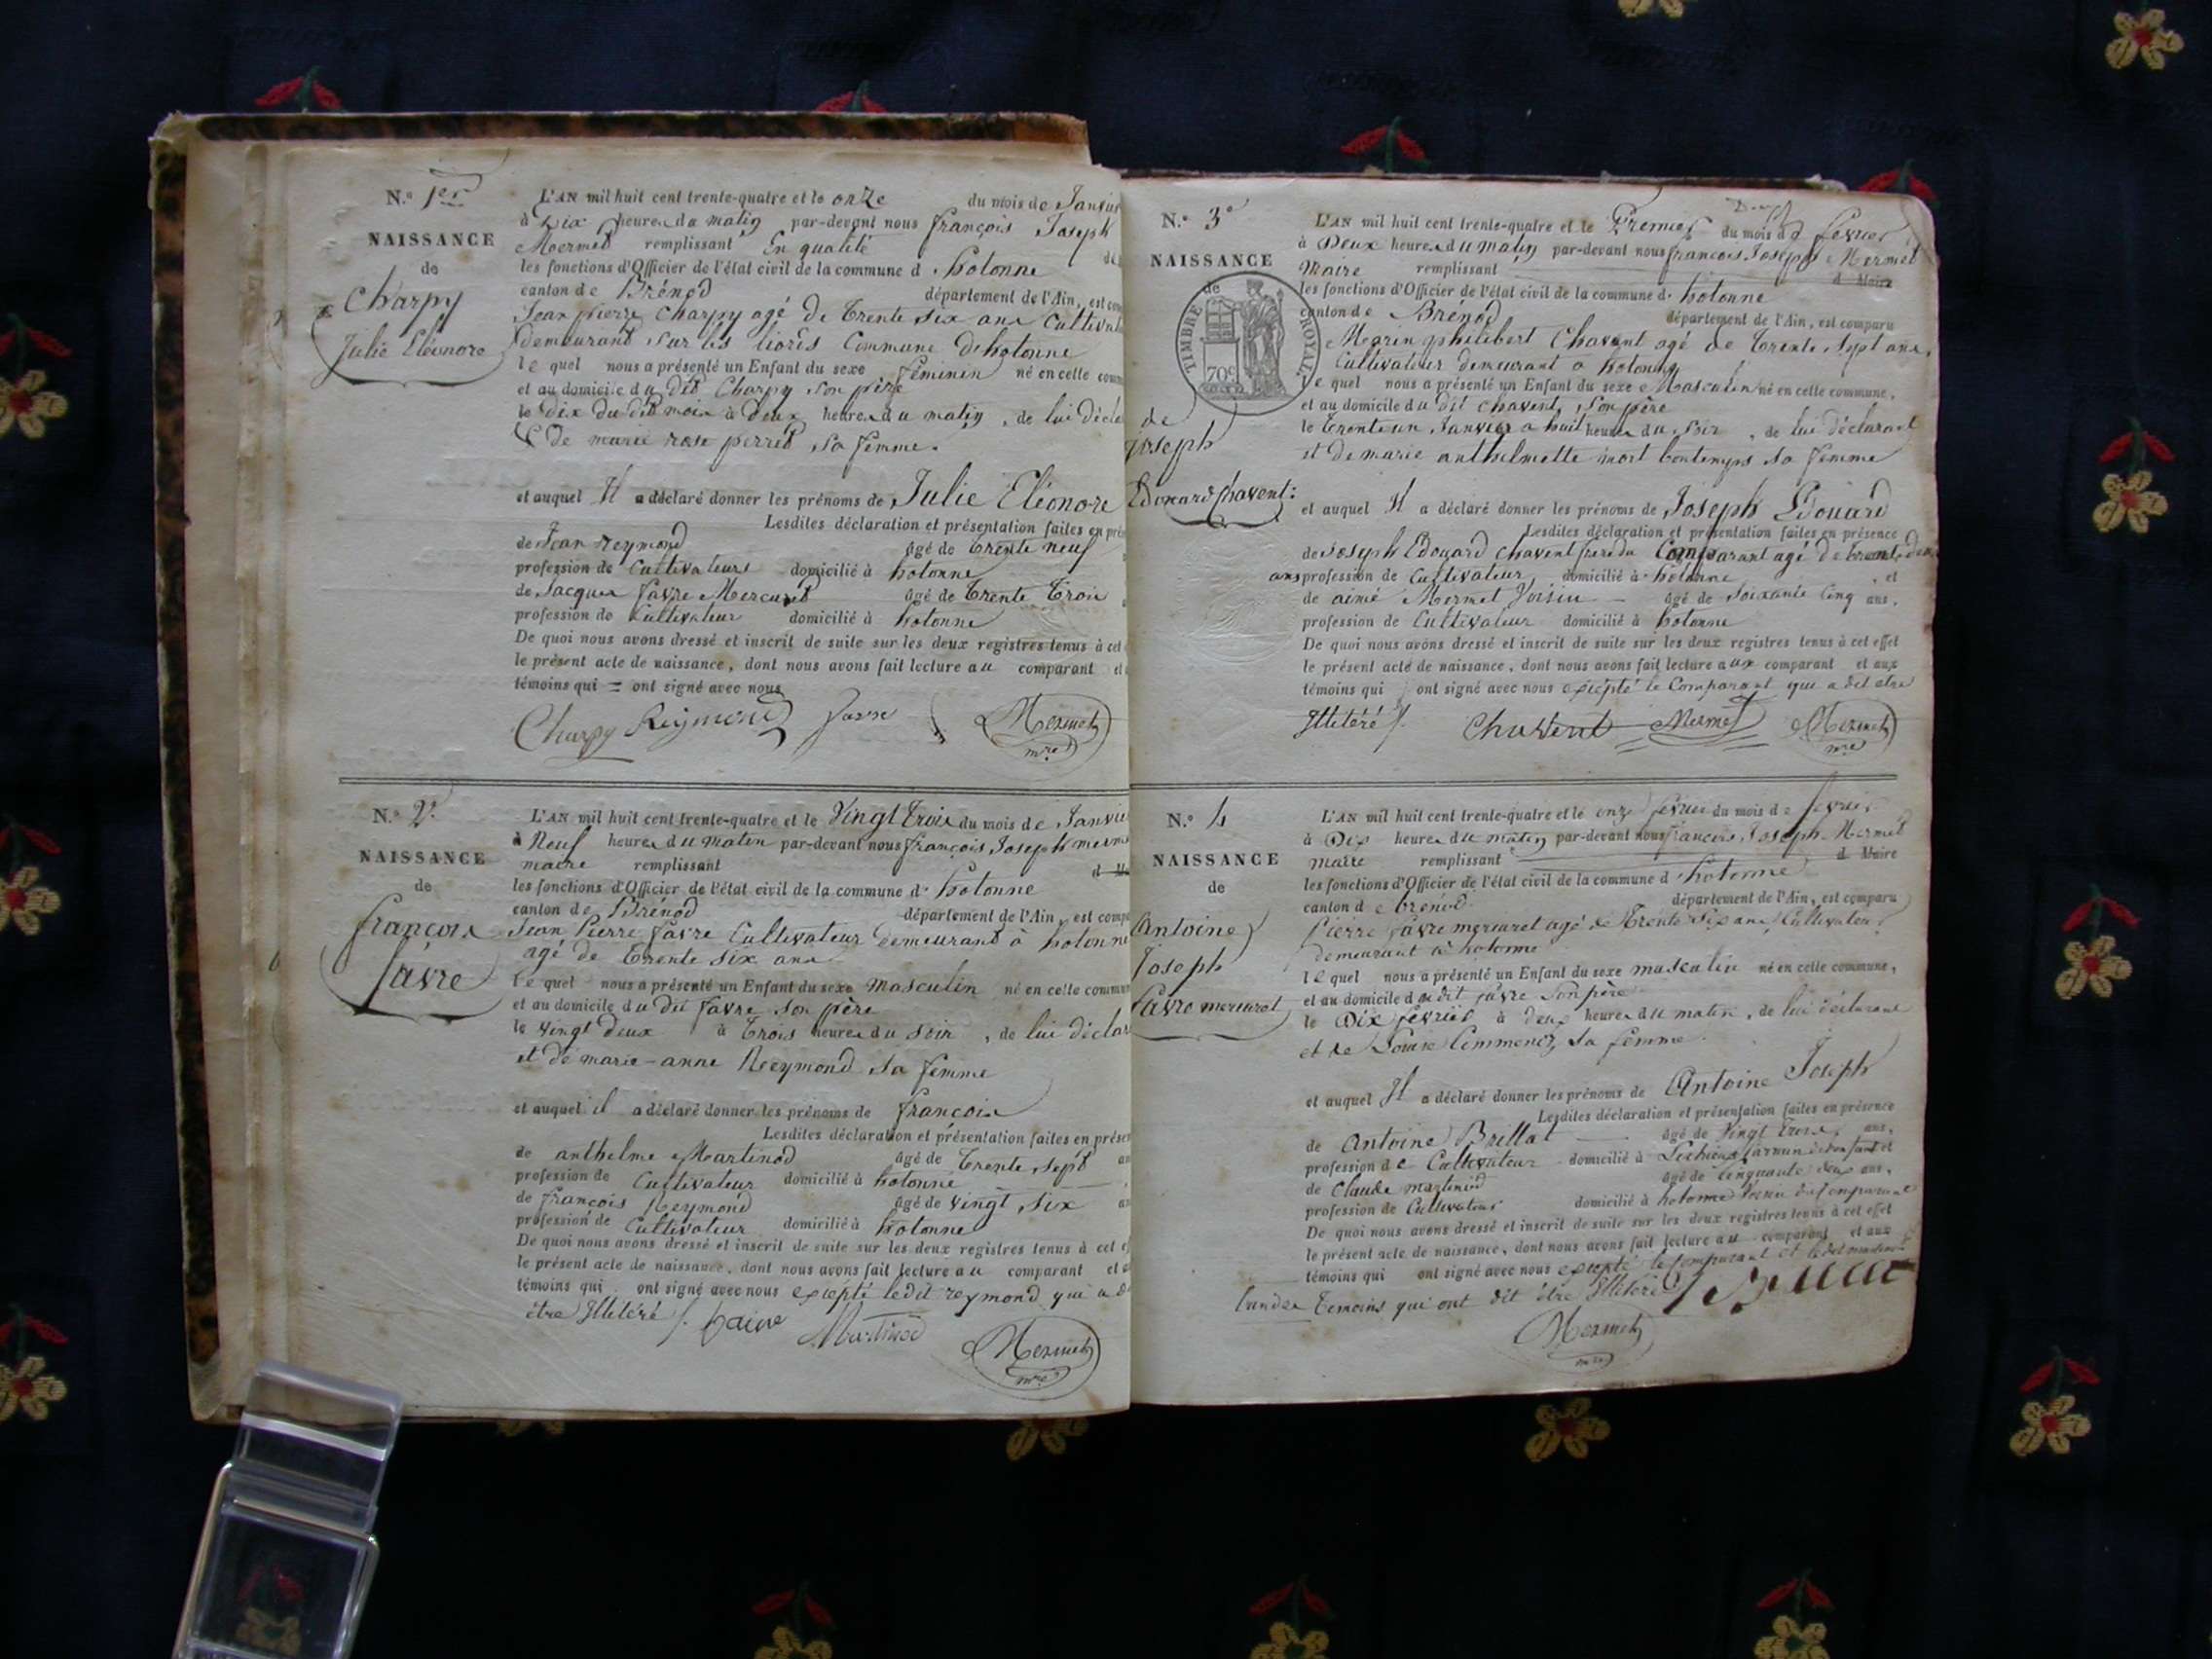 N.° 1er
NAISSANCE
de
Charpy
Julie Eléonore
L'AN mil huit cent trente-quatre et le onze du mois de Janvier
à Dix heures du matin par-devant nous françois Joseph
Mermet remplissant En qualité
les fonctions d'Officier de l'état civil de la commune d hotonne
canton de Brénod département de l'Ain, est com
Jean pierre Charpy agé de trente six ans Cultivat
demeurand sur les liores Commune d'hotonne
lequel nous a présenté un Enfant du sexe féminin né en cette comm
et au domicile du dit Charpy son père
le dix du dit mois à deux heures du matin, de lui décla
& de marie rose perret sa femme.
et auquel Il a déclaré donner les prénoms de Julie Eléonore
Lesdites déclaration et présentation faites en pré
de Jean reymond âgé de trente neuf
profession de Cultivateurs domicilié à hotonne
de Jacques favre Mercuret âgé de trente trois
profession de Cultivateur domicilié à hotonne
De quoi nous avons dressé et inscrit de suite sur les deux registres tenus à cet
le présent acte de naissance, dont nous avons fait lecture au comparant et
témoins qui = ont signé avec nous
Charpy Reymond favre Mermet
mre
N.° 2.
NAISSANCE
de
françois
favre
L'AN mil huit cent trente-quatre et le Vingt trois du mois de Janvie
à Neuf heures du matin par-devant nous françois Joseph merm
maire remplissant
les fonctions d'Officier de l'état civil de la commune d' hotonne
canton de Brénod département de l'Ain, est compa
Jean Pierre favre Cultivateur demeurand à hotonne
agé de trente six ans
lequel nous a présenté un Enfant du sexe masculin né en cette commun
et au domicile du dit favre son père
le vingt deux à trois heures du soir, de lui déclar
et de marie-anne Reymond sa femme
et auquel il a déclaré donner les prénoms de françois
Lesdites déclaration et présentation faites en présen
de anthelme Martinod âgé de trente sept an
profession de Cultivateur domicilié à hotonne
de françois Reymond âgé de vingt six a
profession de Cultivateur domicilié à hotonne
De quoi nous avons dressé et inscrit de suite sur les deux registres tenus à cet ef
le présent acte de naissance, dont nous avons fait lecture au comparant et a
témoins qui ont signé avec nous exiépté ledit reymond qui a d
être Illitéré /. Martinod Mermet
mre
N.° 3e
NAISSANCE
de
TIMBRE ROYAL.
70c
de
joseph
Edouard Chavent:
L'AN mil huit cent trente-quatre et le Premier du mois de fevrier
à Deux heures du matin par-devant nous francois Joseph Mermet
Maire remplissant d Maire
les fonctions d'Officier de l'état civil de la commune d. hotonne
canton de Brénod département de l'Ain, est comparu
Marin philibert Chavent agé de trente sept ans,
Cultivateur demeurant à hotonne
lequel nous a présenté un Enfant du sexe Masculin né en cette commune,
et au domicile du dit chavent, son père
le trente un Janvier a huit heures du soir, de lui déclarant
et de marie anthelmette mort bontemps sa femme
et auquel Il a déclaré donner les prénoms de Joseph Edouard
Lesdites déclaration et présentation faites en présence
de Joseph Edouard Chavent frere du Comparant agé de trente deux
ans profession de Cultivateur, domicilié à hotonne, et
de aimé Mermet Voisin âgé de soixante Cinq ans,
profession de Cultivateur domicilié à hotonne
De quoi nous avons dressé et inscrit de suite sur les deux registres tenus à cet effet
le présent acte de naissance, dont nous avons fait lecture aux comparant et aux
témoins qui ont signé avec nous exiépté le Comparant qui a dit etre
Illitéré /. Chavent Mermet Mermet
mre
N.° 4
NAISSANCE
de
Antoine
Joseph
favre mercuret
L'AN mil huit cent trente-quatre et le onze fevrier du mois de fevrier
à Dix heures du matin par-devant nous francois Joseph Mermet
maire remplissant d Maire
les fonctions d'Officier de l'état civil de la commune d hotonne
canton de brénod département de l'Ain, est comparu
Pierre favre mercuret agé de trente six ans, Cultivateur
demeurant à hotonne
lequel nous a présenté un Enfant du sexe masculin né en cette commune,
et au domicile du dit favre son père
le Dix février à deux heures du matin, de lui déclarant
et de Louise sa femme
et auquel Il a déclaré donner les prénoms de Antoine Joseph
Lesdites déclaration et présentation faites en présence
de Antoine Brillat âgé de Vingt trois ans,
profession de Cultivateur domicilié à
de Claude martinod âgé de Cinquante deux ans,
profession de Cultivateur domicilié à hotonne du Comparant
De quoi nous avons dressé et inscrit de suite sur les deux registres tenus à cet effet
le présent acte de naissance, dont nous avons fait lecture au comparant et aux
témoins qui ont signé avec nous exiépté le comparant et ledit martinod
témoins qui ont dit être Illitéré
Mermet
mre